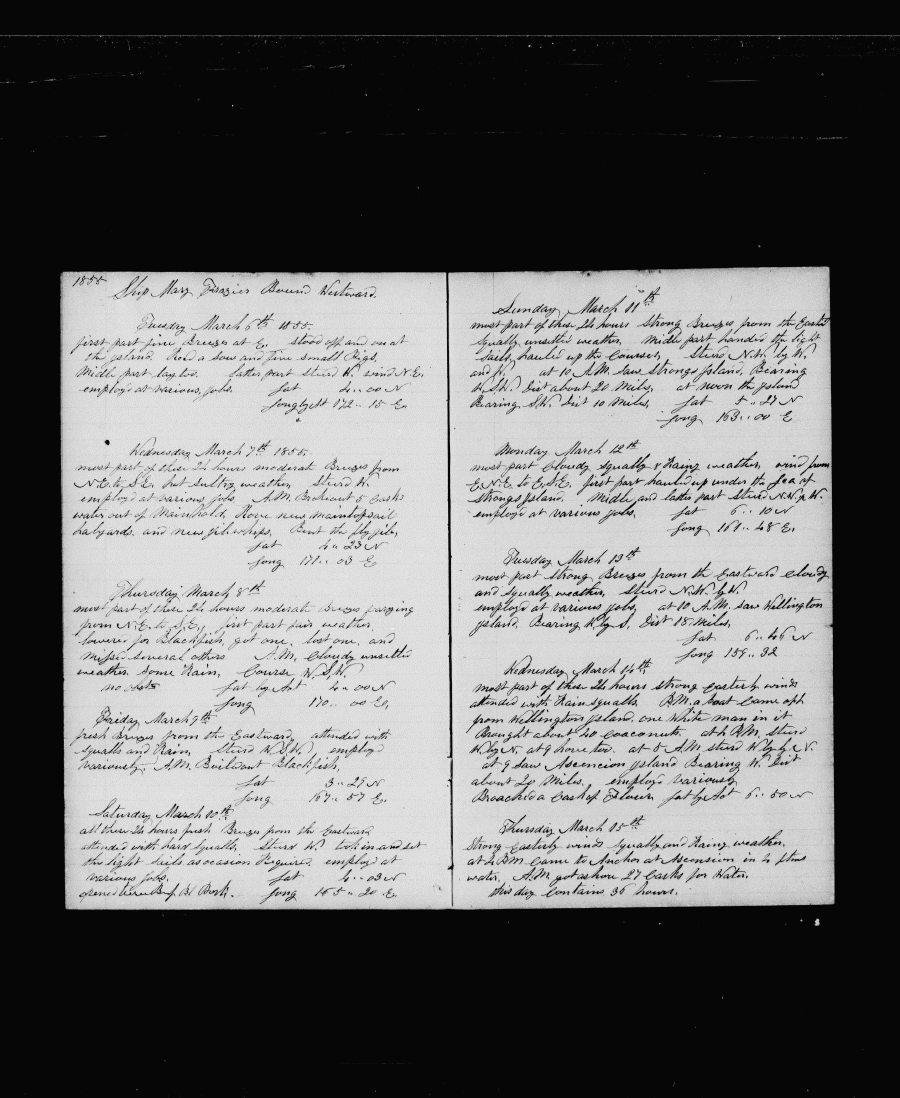 1855
Ship Mary Frazier Bound Westward.
Tuesday March 6th 1855.
first part fine Breezes at E. stood off and on at
the Island. Recd a sow and five small Pigs.
Middle part lay too. latter part steerd W. wind N.E.
employd at various jobs. Lat 4.. 00 N
Long by Lt 172.. 15 E.
Wednesday March 7th 1855.
most part of these 24 hours moderate Breezes from
N.E. to S.E. hot sultry weather, Steerd W.
employd at various jobs A.M. Broke out 5 Casks
water out of Mainhold. Rove new maintopsail
halyards. and new jib whips. Bent the fly jib,
Lat 4.. 23 N
Long 171.. 03 E
Thursday March 8th
most part of these 24 hours moderate Breezes
from N.E. to S.E., first part fair weather,
lowered for Blackfish, got one, lost one, and
missed several others A.M. Cloudy unsettled
weather some Rain, Course W.S.W.
no Lat by Act 4.. 00 N
Long 170.. 00 E,
Friday March 9th
fresh Breezes from the Eastward, attended with
squalls and Rain, Steerd W.S.W. employd
variously, A.M. Boiled out Blackfish,
Lat 3.. 29 N
Long 167.. 57 E.
Saturday March 10th
all these 24 hours fresh Breezes from the Eastward
attended with hard squalls. Steerd W. took in and set
the light sails as occasion Required. employd at
various jobs. Lat 4.. 03 N
opened Long 165.. 20 E.
Sunday, March 11th
most part of these 24 hours Strong Breezes from the Eastd
squally unsettled weather, Middle part handed the light
sails, hauled up the Courses, Steerd N.W. by W.
and W. at 10 A.M. Saw Strongs Island, Bearing
W.S.W. Dist about 20 Miles, at noon the Island
Bearing S.W. Dist 10 Miles, Lat 5.. 27 N
Long 163.. 00 E
Monday March 12th
most part Cloudy squally & Rainy weather, wind from
E.N.E. to E.S.E. first part hauled up under the Lea of
Strongs Island. Middle and latter part steerd N.W. by W.
employd at various jobs, Lat 6.. 10 N
Long 161.. 48 E.
Tuesday March 13th
most part Strong Breezes from the Eastward Cloudy
and squally weather, Steerd N.W. by W.
employd at various jobs, at 10 A.M. saw Wellington
Island, Bearing W. by S. Dist 18 Miles,
Lat 6.. 46 N
Long 159.. 32
Wednesday March 14th
most part of these 24 hours strong easterly winds
attended with Rain squalls P.M. a boat Came off
from Wellington Island one White man in it
Bought about 20 Coacanuts. at 4 P.M. steerd
W. by N. at 9 hove too. at 5 A.M steerd
at 9 saw Ascencion Island Bearing W. Dist
about 20 Miles, employd variously
Broached a Cask of Flour, Lat by Act 6.. 50 N
Thursday March 15th
Strong Easterly winds squally and Rainy weather,
at 4 P.M. Came to Anchor at Ascension in 4 ftms
water, A.M. got ashore 27 Casks for Water.
this day Contains 36 hours.